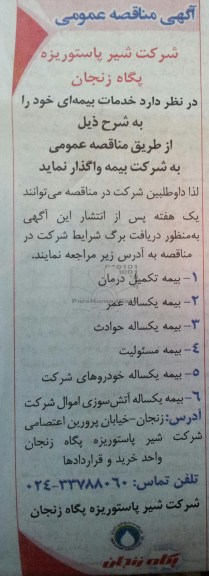 آگهی مناقصه عمومی
شرکت شیر پاستوریزه
پگاه زنجان
در نظر دارد خدمات بیمه‌ای خود را
به شرح ذیل
از طریق مناقصه عمومی
به شرکت بیمه واگذار نماید
لذا داوطلبین شرکت در مناقصه می‌توانند
یک هفته پس از انتشار این آگهی
به‌منظور دریافت برگ شرایط شرکت در
مناقصه به آدرس زیر مراجعه نمایند.
۱- بیمه تکمیل درمان
۲- بیمه یکساله عمر
۳- بیمه یکساله حوادث
۴- بیمه مسئولیت
۵- بیمه یکساله خودروهای شرکت
۶- بیمه یکساله آتش‌سوزی اموال شرکت
آدرس: زنجان-خیابان پروین اعتصامی
شرکت شیر پاستوریزه پگاه زنجان
واحد خرید و قراردادها
تلفن تماس: ۳۳۷۸۸۰۶۰-۰۲۴
شرکت شیر پاستوریزه پگاه زنجان
پگاه زنجان